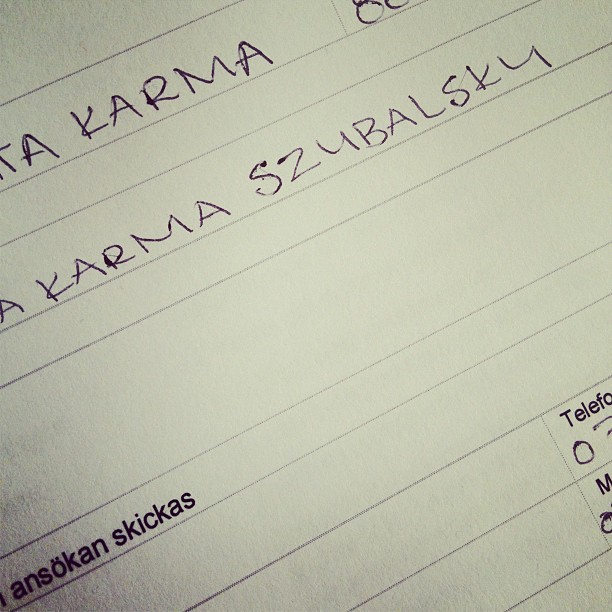 TA KARMA
A KARMA SZUBALSKY
Telefo
07
M
ansökan skickas